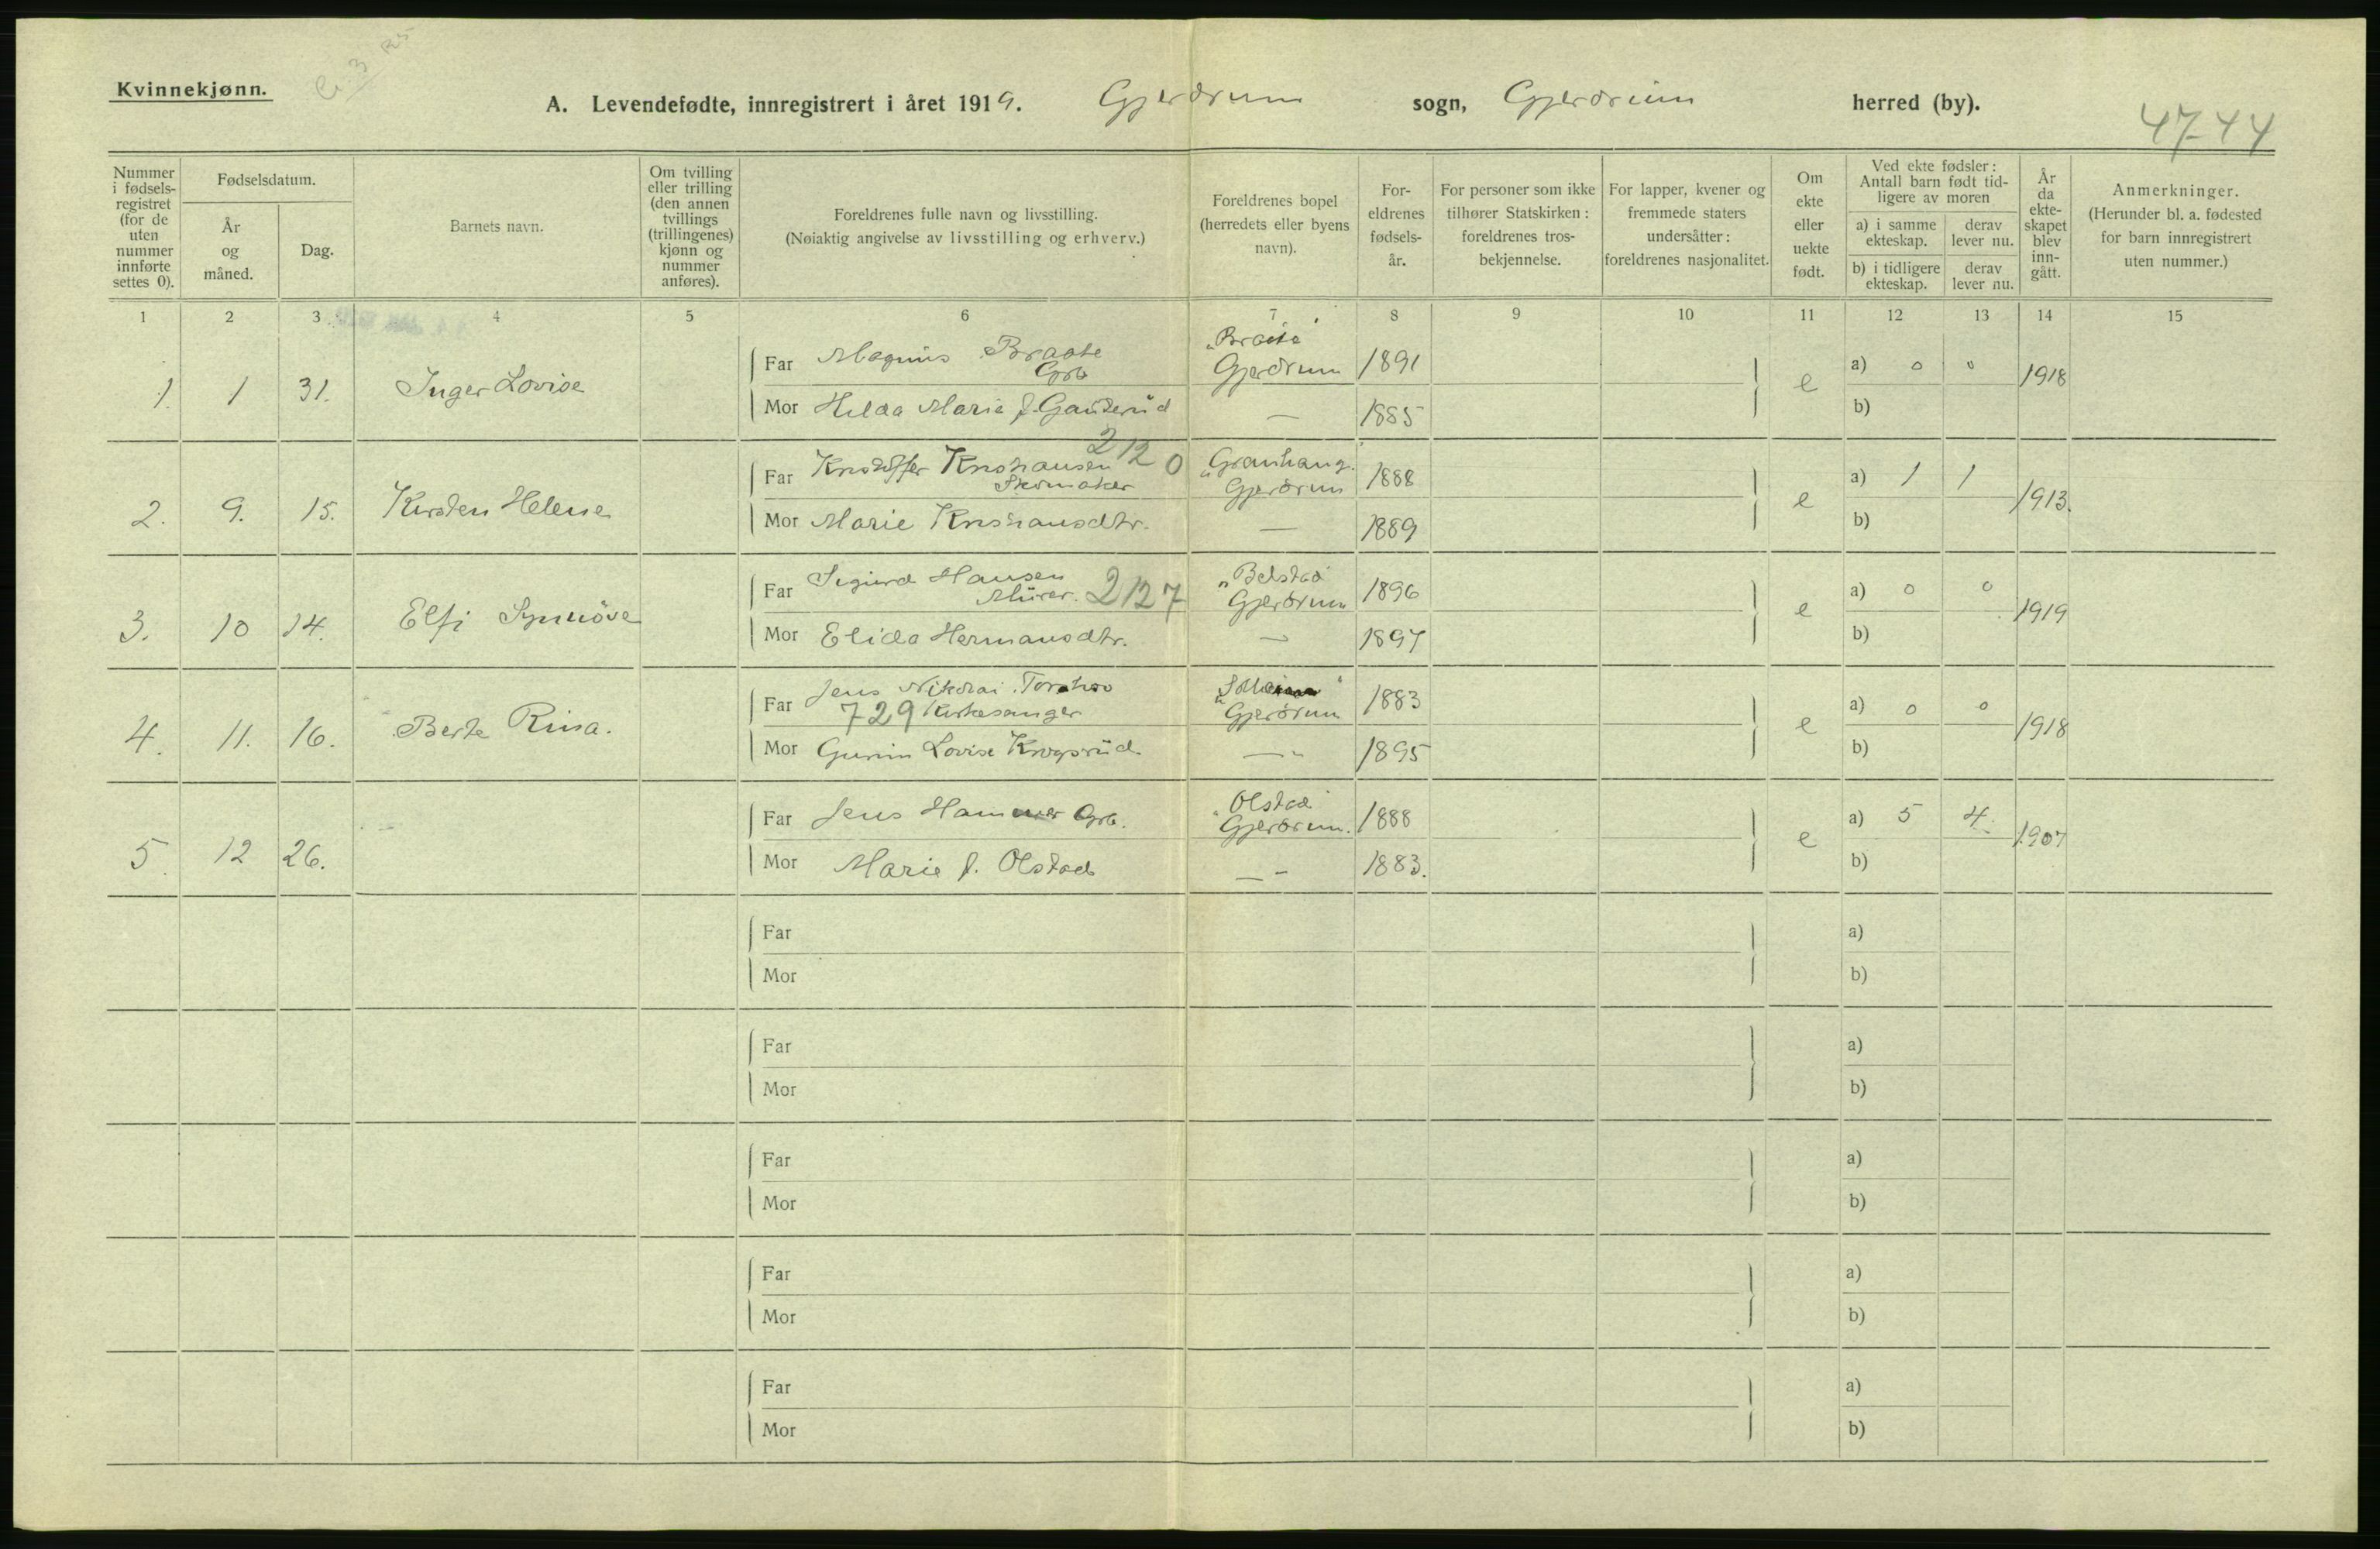 Kvinnekjønn.
A. Levendefødte, innregistrert i året 1919. Gjerdrum sogn, Gjerdrum herred (by).
4744
Nummer i fødsels-registret (for de uten nummer innførte settes 0).
Fødselsdatum.
År og måned.
Dag.
Barnets navn.
Om tvilling eller trilling (den annen tvillings (trillingenes) kjønn og nummer anføres).
Foreldrenes fulle navn og livsstilling.
(Nøiaktig angivelse av livsstilling og erhverv.)
Foreldrenes bopel (herredets eller byens navn).
For-eldrenes fødsels-år.
For personer som ikke tilhører Statskirken: foreldrenes tros-bekjennelse.
For lapper, kvener og fremmede staters undersåtter: foreldrenes nasjonalitet.
Om ekte eller uekte født.
Ved ekte fødsler: Antall barn født tid-ligere av moren
a) i samme ekteskap.
derav lever nu.
b) i tidligere ekteskap.
derav lever nu.
År da ekte-skapet blev inn-gått.
Anmerkninger.
(Herunder bl. a. fødested for barn innregistrert uten nummer.)
1 2 3 4 5 6 7 8 9 10 11 12 13 14 15
1. 1 31. Inger Lovise
Far Magnus Braate Grb "Braate" Gjerdrum 1891
Mor Hilda Marie f. Ganderud — 1885
e a) 0 0 1918
b)
2120
2. 9. 15. Kirsten Helene
Far Kristoffer Kristiansen Skomaker "Granhaug" Gjerdrum 1888
Mor Marie Kristiansdtr. — 1889
e a) 1 1 1913.
b)
3. 10 14. Elfi Synnöve
Far Sigurd Hansen Murer. 2127 "Belstad Gjerdrum 1896
Mor Elida Hermansdtr. — 1897
e a) 0 0 1919
b)
4. 11. 16. Berte
Far Jens Nikolai 729 Kirkesanger Gjerdrum 1883
Mor Lovise Krogsrud — " 1895
e a) 0 0 1918
b)
5. 12 26.
Far Jens Hammer Grb. "Olstad" Gjerdrum. 1888
Mor Marie f. Olstad — - 1883.
e a) 5 4. 1907
b)
Far a)
Mor b)
Far a)
Mor b)
Far a)
Mor b)
Far a)
Mor b)
Far a)
Mor b)